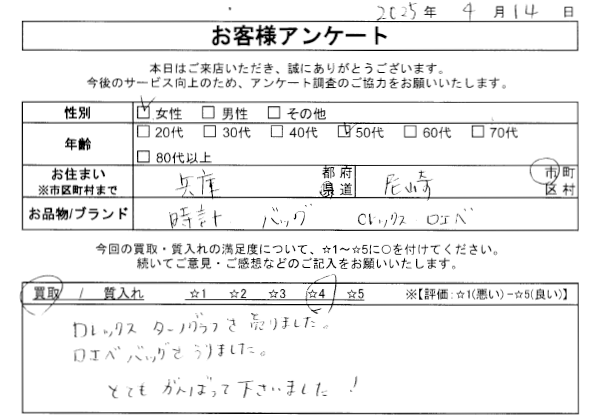 2025年 4月14日
お客様アンケート
本日はご来店いただき、誠にありがとうございます。
今後のサービス向上のため、アンケート調査のご協力をお願いいたします。
性別 ☑女性 □男性 □その他
年齢 □20代 □30代 □40代 ☑50代 □60代 □70代
□80代以上
お住まい ※市区町村まで 兵庫 都府県道 尼崎 市町区村
お品物/ブランド 時計 バッグ ロレックス ロエベ
今回の買取・質入れの満足度について、☆1～☆5に○を付けてください。
続いてご意見・ご感想などのご記入をお願いいたします。
買取 / 質入れ ☆1 ☆2 ☆3 ☆4 ☆5 ※【評価：☆1(悪い)－☆5(良い)】
ロレックス ターノグラフを売りました。
ロエベバッグをうりました。
とてもがんばって下さいました！